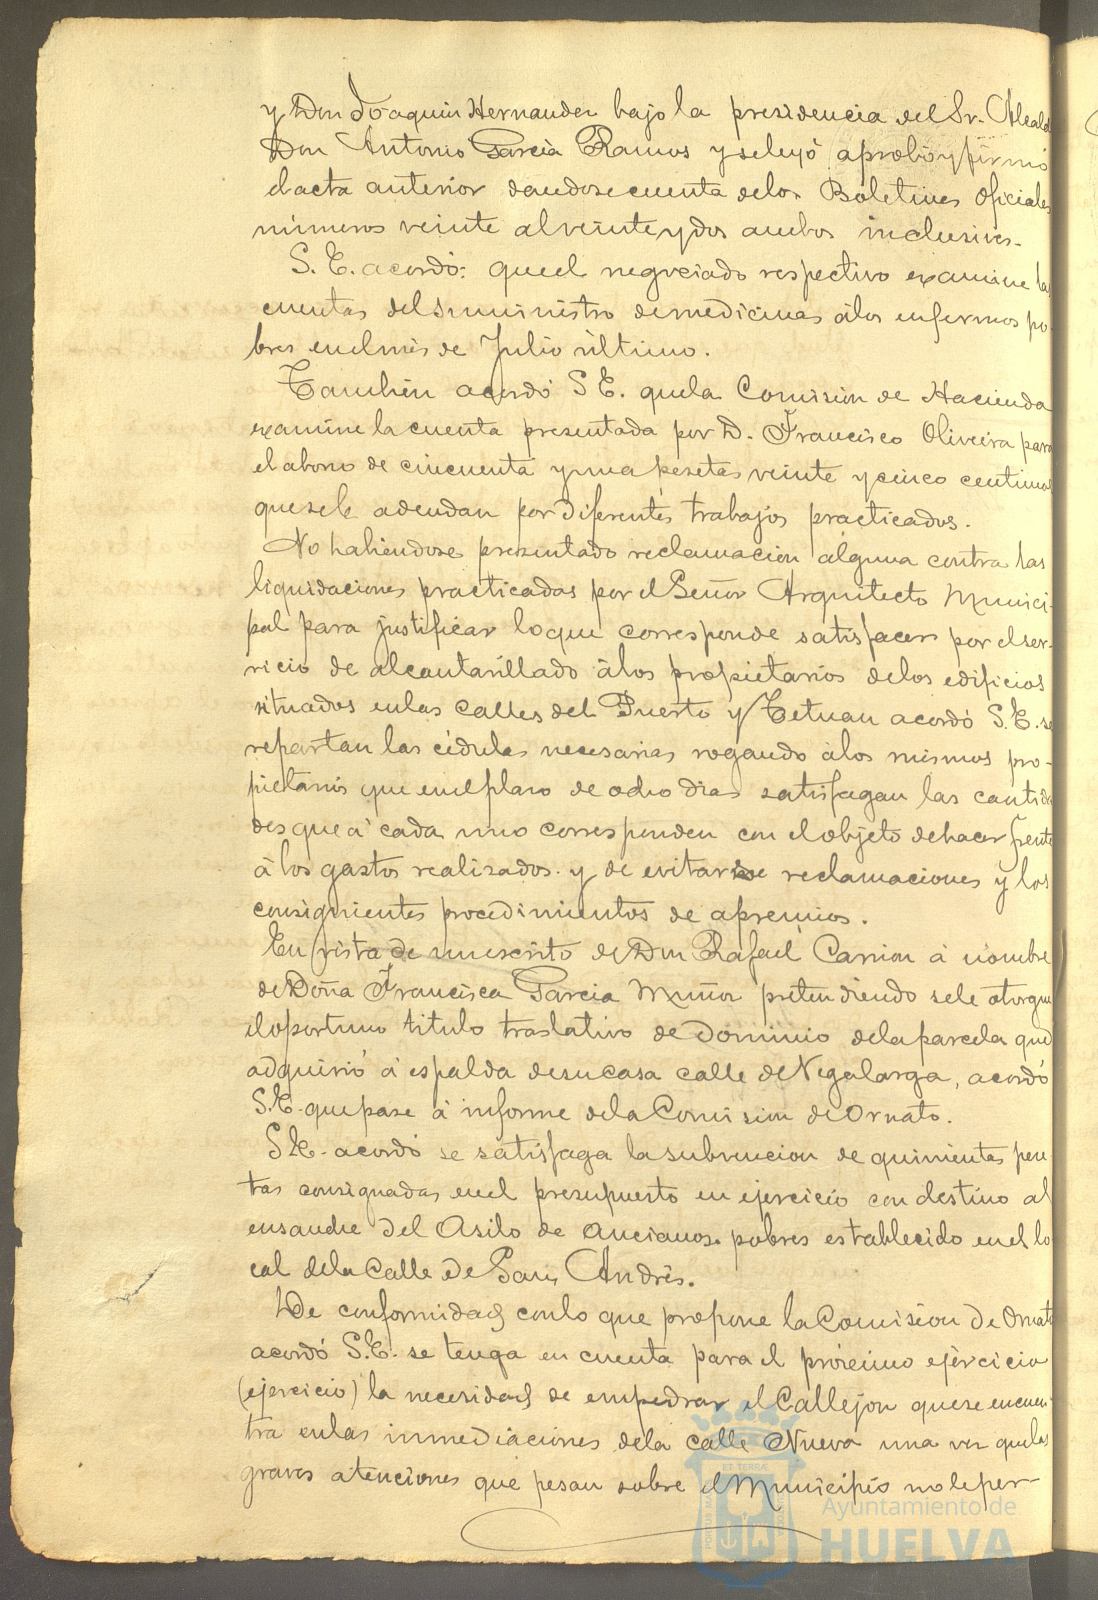 y Don Joaquin Hernandez bajo la presidencia del Sr. Alcald
Don Antonio Garcia Ramos y se leyó aprobó y firmó
el acta anterior dandose cuenta de los Boletines oficiales
números veinte al veinte y dos ambos inclusives.
S. E. acordó: que el negociado respectivo examine las
cuentas del suministro de medicinas á los enfermos po-
bres en el mes de Julio último.
También acordó S E. que la Comisión de Hacienda
examine la cuenta presentada por D. Francisco Oliveira para
el abono de cincuenta y una pesetas veinte y cinco centimos
que se le adeudan por diferentes trabajos practicados.
No habiendose presentado reclamación alguna contra las
liquidaciones practicadas por el Señor Arquitecto Munici-
pal para justificar lo que corresponde satisfacer por el ser-
vicio de alcantarillado á los propietarios de los edificios
situados en las calles del Puerto y Tetuan acordó S. E. se
repartan las cédulas necesarias rogando á los mismos pro-
pietarios que en el plazo de ocho dias satisfagan las cantida
des que á cada uno corresponden con el objeto de hacer frente
á los gastos realizados y de evitarse reclamaciones y los
consiguientes procedimientos de apremios.
En vista de un escrito de Don Rafael Carrion á nombre
de Doña Francisca Garcia Muñoz pretendiendo se le otorgue
el oportuno titulo traslativo de dominio de la parcela que
adquirió á espalda de su casa calle de Vegalarga, acordó
S. E. que pase á informe de la Comision de Ornato.
S. E. acordó se satisfaga la subvencion de quinientas pese-
tas consignadas en el presupuesto en ejercicio con destino al
ensanche del Asilo de Ancianos pobres establecido en el lo
cal de la Calle de San Andrés.
De conformidad con lo que propone la Comisión de Ornato
acordó S. E. se tenga en cuenta para el próximo ejercicio
(ejercicio) la necesidad de empedrar el Callejon que se encuen-
tra en las inmediaciones de la calle Nueva una vez que las
graves atenciones que pesan sobre el Municipio no le per-
Ayuntamiento de
HUELVA